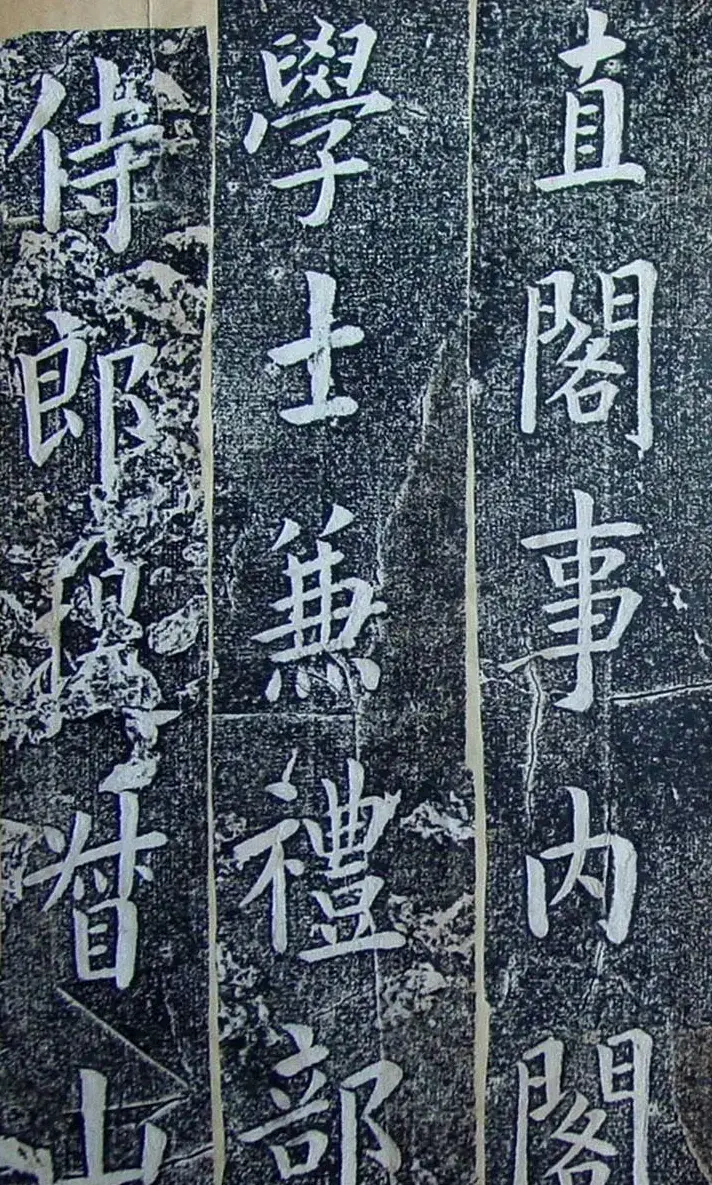 直閣事内閣
學士兼禮部
侍郎提督山